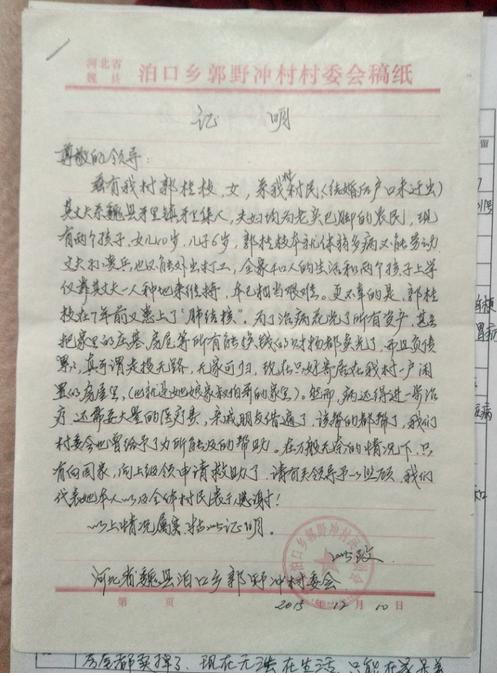 河北省
魏县
泊口乡郭野冲村村委会稿纸
证 明
尊敬的领导：
兹有我村郭桂枝，女，系我村村民（结婚后户口未迁出）
其丈夫系魏县牙里镇牙里保人，夫妇均为老实巴脚的农民，现
有两个孩子，女儿10岁，儿子6岁，郭桂枝本就体弱多病又不能劳动
丈夫不能外出打工，全家四口人的生活和两个孩子上学
仅靠其丈夫一人种地来维持，本已相当艰难。更不幸的是，郭桂
枝在7年前又患上了"肺结核"。为了治病花光了所有资产，甚至
把家里的庄基、房屋等所有能换钱的财物都卖光了，而且负债
累累，真可谓走投无路，无家可归，现在只好寄居在我村一户闲
置的房屋里，（也就是她娘家叔伯哥的家里）。然而，病还得进一步治
疗，还需要大量的医疗费，亲戚朋友借遍了，该帮的都帮了，我们
村委会也曾给予了力所能及的帮助。在万般无奈的情况下，只
有向国家，向上级领申请救助了，请有关领导予以照顾，我们
代表她本人以及全体村民表示感谢！
以上情况属实，特此证明。
此致
河北省魏县泊口乡郭野冲村委会
第 页
2015 年 12 月 10 日
房屋都卖掉了，现在无法在生活，只能在